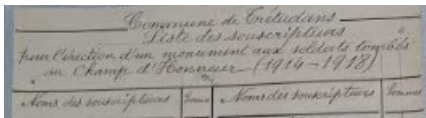 Commune de Trétudans
Liste des souscripteurs
pour l'érection d'un monument aux soldats tombés
au Champ d'Honneur (1914-1918)
Noms des souscripteurs Somme Noms des souscripteurs Sommes